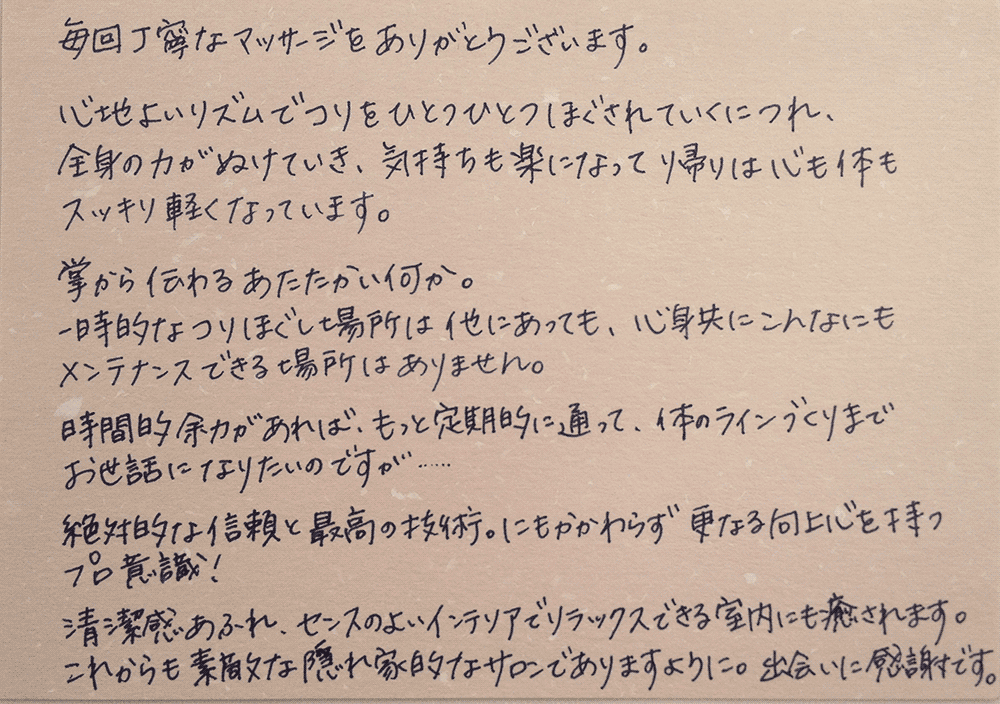 毎回丁寧なマッサージをありがとうございます。
心地よいリズムでコリをひとつひとつほぐされていくにつれ、
全身の力がぬけていき、気持ちも楽になって帰りは心も体も
スッキリ軽くなっています。
掌から伝わるあたたかい何か。
一時的なコリほぐし場所は他にあっても、心身共にこんなにも
メンテナンスできる場所はありません。
時間的余力があれば、もっと定期的に通って、体のラインづくりまで
お世話になりたいのですが……
絶対的な信頼と最高の技術。にもかかわらず更なる向上心を持つ
プロ意識!
清潔感あふれ、センスのよいインテリアでリラックスできる室内にも癒されます。
これからも素敵な隠れ家的なサロンでありますように。出会いに感謝です。